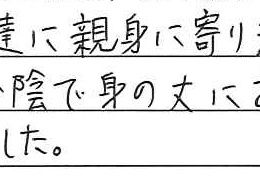 達に親身に寄り
陰で身の丈に
した。